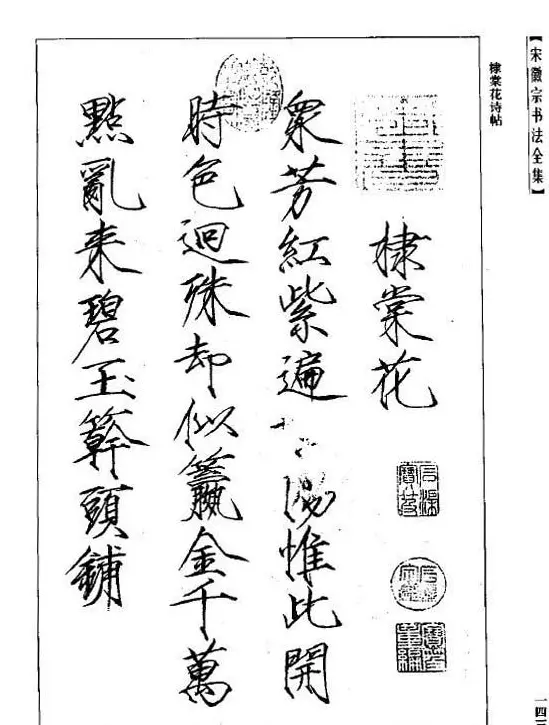 【宋徽宗书法全集】
棣棠花诗帖
棣棠花
衆芳紅紫遍惟此開
時色逈殊却似籯金千萬
點亂来碧玉簳頭鋪